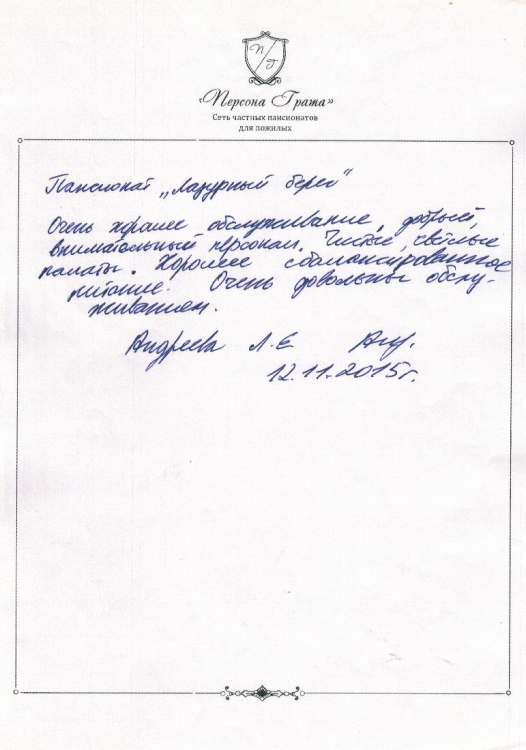 П
Г
«Персона Грата»
Сеть частных пансионатов
для пожилых
Пансионат „Лазурный берег"
Очень хорошее обслуживание, добрый,
внимательный персонал. Чистые, светлые
палаты. Хорошее сбалансированное
питание. Очень довольны обслу-
живанием.
Андреева Л.Е.
12.11.2015г.